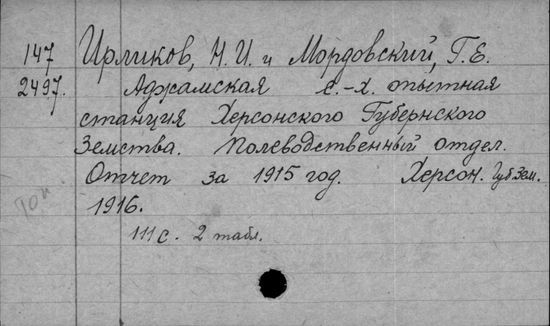 147 Ирликов, Н. И. и Мордовский, Г. Е.
2497. Аджамская с.-х. опытная
станция Херсонского Губернского
Земства. Полеводственный отдел.
Отчет за 1915 год. Херсон. Губ. Зем.
1916.
111 с. 2 табл.